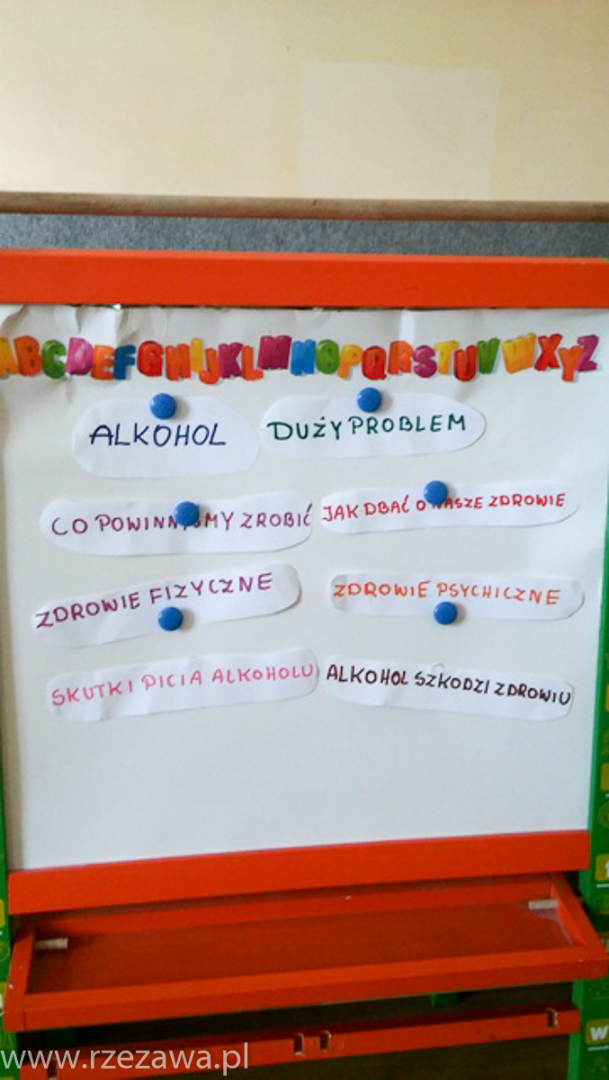 ABCDEFGHIJKLMNOPQRSTUVWXYZ
ALKOHOL
DUŻY PROBLEM
CO POWINNIŚMY ZROBIĆ
JAK DBAĆ O NASZE ZDROWIE
ZDROWIE FIZYCZNE
ZDROWIE PSYCHICZNE
SKUTKI PICIA ALKOHOLU
ALKOHOL SZKODZI ZDROWIU
www.rzezawa.pl